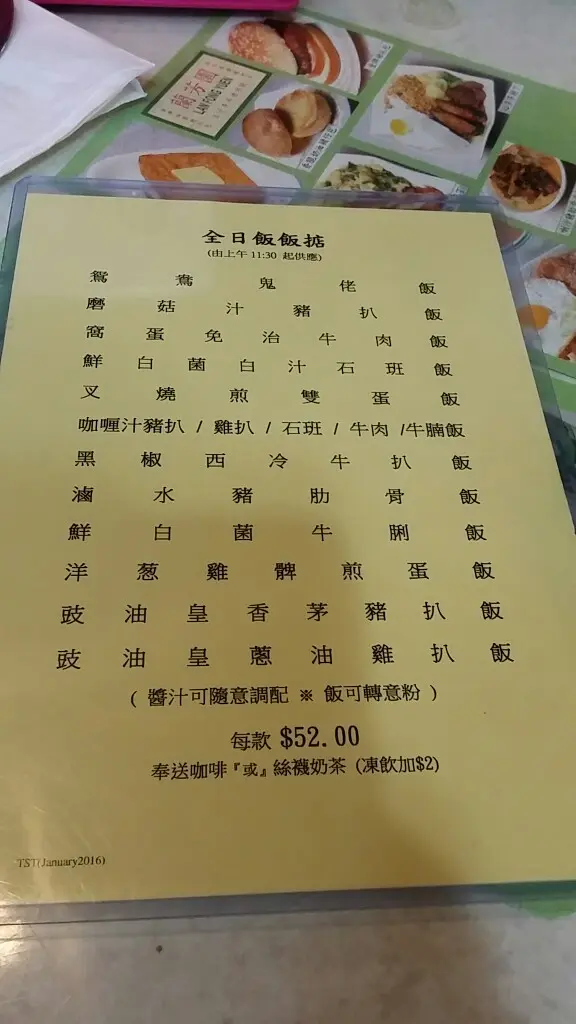 蘭芳園
LAN FONG YUEN
全日飯飯掂
(由上午 11:30 起供應)
鴛鴦鬼佬飯
磨菇汁豬扒飯
窩蛋免治牛肉飯
鮮白菌白汁石班飯
叉燒煎雙蛋飯
咖喱汁豬扒 / 雞扒 / 石班 / 牛肉 /牛腩飯
黑椒西冷牛扒飯
滷水豬肋骨飯
鮮白菌牛脷飯
洋葱雞髀煎蛋飯
豉油皇香茅豬扒飯
豉油皇蔥油雞扒飯
( 醬汁可隨意調配 ※ 飯可轉意粉 )
每款 $52.00
奉送咖啡『或』絲襪奶茶 (凍飲加$2)
TST(January2016)